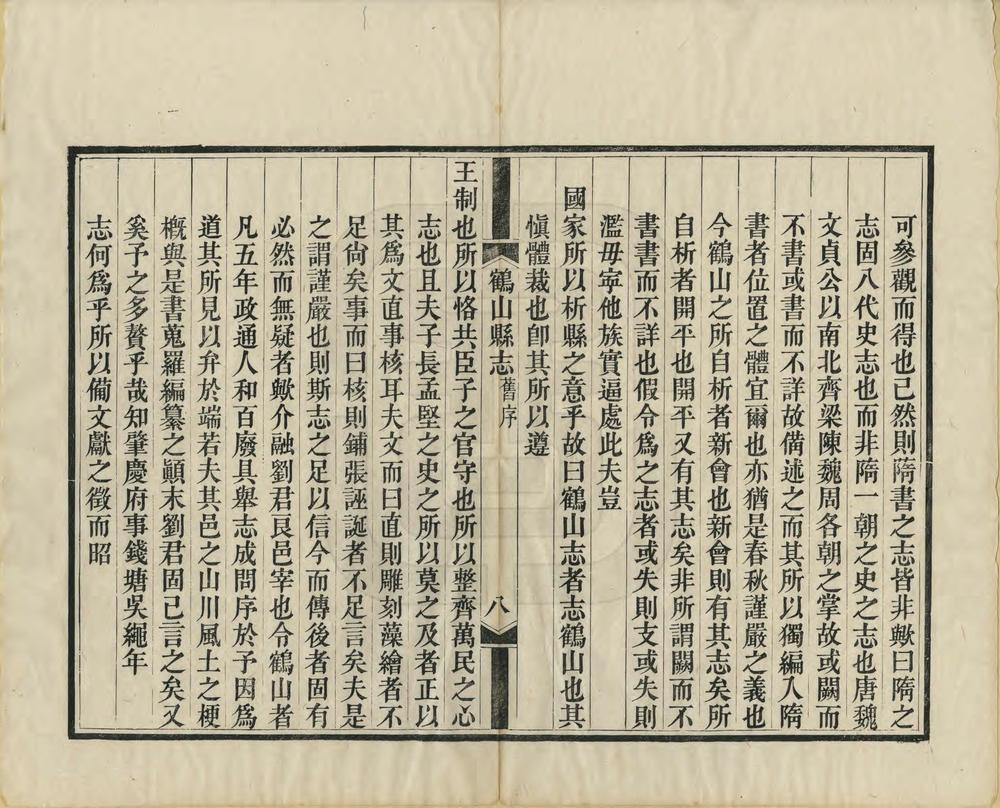 可參觀而得也已然則隋書之志皆非歟曰隋之
志固八代史志也而非隋一朝之史之志也唐魏
文貞公以南北齊梁陳魏周各朝之掌故或闕而
不書或書而不詳故備述之而其所以獨編入隋
書者位置之體宜爾也亦猶是春秋謹嚴之義也
今鶴山之所自析者新會也新會則有其志矣所
自析者開平也開平又有其志矣非所謂闕而不
書書而不詳也假令爲之志者或失則支或失則
濫毋寧他族實逼處此夫豈
國家所以析縣之意乎故曰鶴山志者志鶴山也其
愼體裁也卽其所以遵
鶴山縣志 舊序 八
王制也所以恪共臣子之官守也所以整齊萬民之心
志也且夫子長孟堅之史之所以莫之及者正以
其爲文直事核耳夫文而曰直則雕刻藻繪者不
足尙矣事而曰核則鋪張誣誕者不足言矣夫是
之謂謹嚴也則斯志之足以信今而傳後者固有
必然而無疑者歟介融劉君艮邑宰也令鶴山者
凡五年政通人和百廢具舉志成問序於予因爲
道其所見以弁於端若夫其邑之山川風土之梗
槪與是書蒐羅編纂之顚末劉君固已言之矣又
奚予之多贅乎哉知肇慶府事錢塘吳繩年
志何爲乎所以備文獻之徵而昭